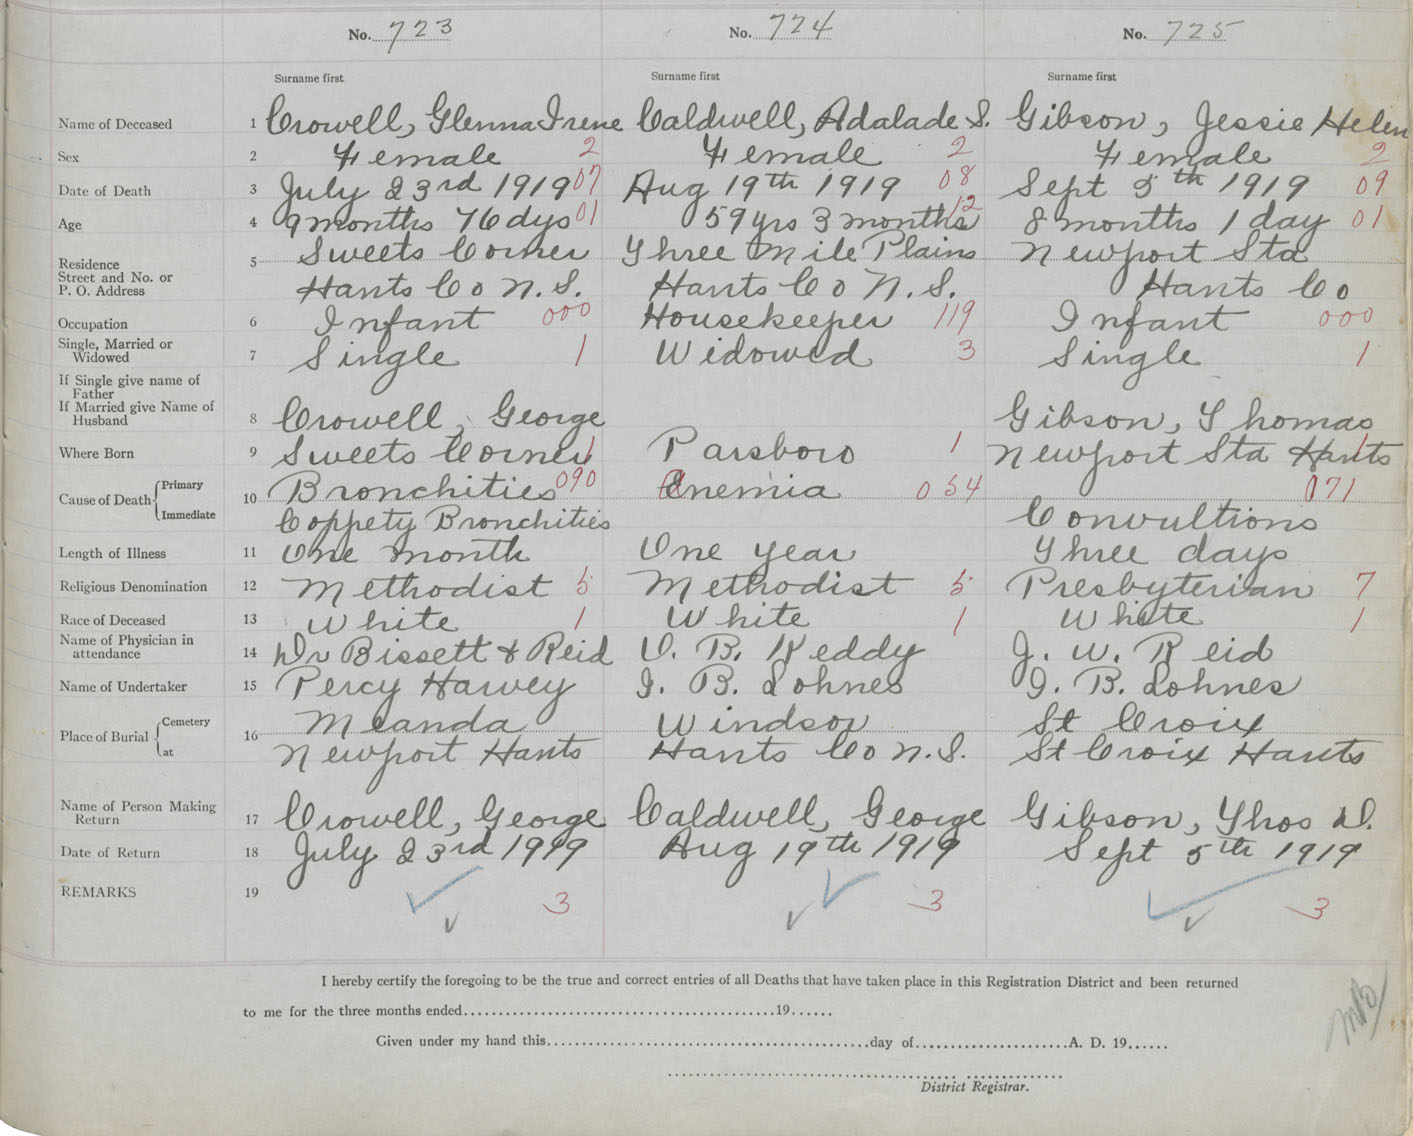 No. 723 No. 724 No. 725
Surname first Surname first Surname first
Name of Deceased 1 Crowell, Glenna Irene Caldwell, Adalade S. Gibson, Jessie Helen
Sex 2 Female 2 Female 2 Female 2
Date of Death 3 July 23rd 1919 07 Aug 19th 1919 08 Sept 5th 1919 09
Age 4 9 months 16 dys 01 59 yrs 3 months 12 8 months 1 day 01
Residence 5 Sweets Corner Three Mile Plains Newport Sta
Street and No. or
P. O. Address Hants Co N.S. Hants Co N.S. Hants Co
Occupation 6 Infant 000 Housekeeper 119 Infant 000
Single, Married or
Widowed 7 Single 1 Widowed 3 Single 1
If Single give name of
Father
If Married give Name of
Husband 8 Crowell, George Gibson, Thomas
Where Born 9 Sweets Corner 1 Parsboro 1 Newport Sta Hants 1
Cause of Death Primary 10 Bronchities 090 Anemia 054 071
Immediate Coppety Bronchities Convultions
Length of Illness 11 One month One year Three days
Religious Denomination 12 Methodist 5 Methodist 5 Presbyterian 7
Race of Deceased 13 White 1 White 1 White 1
Name of Physician in
attendance 14 Dr Bissett & Reid O. B. Keddy J. W. Reid
Name of Undertaker 15 Percy Harvey I. B. Lohnes I. B. Lohnes
Place of Burial Cemetery 16 Meanda Windsor St Croix
at Newport Hants Hants Co N.S. St Croix Hants
Name of Person Making
Return 17 Crowell, George Caldwell, George Gibson, Thos D.
Date of Return 18 July 23rd 1919 Aug 19th 1919 Sept 5th 1919
REMARKS 19 3 3 3
I hereby certify the foregoing to be the true and correct entries of all Deaths that have taken place in this Registration District and been returned
to me for the three months ended 19
Given under my hand this day of A. D. 19
District Registrar.